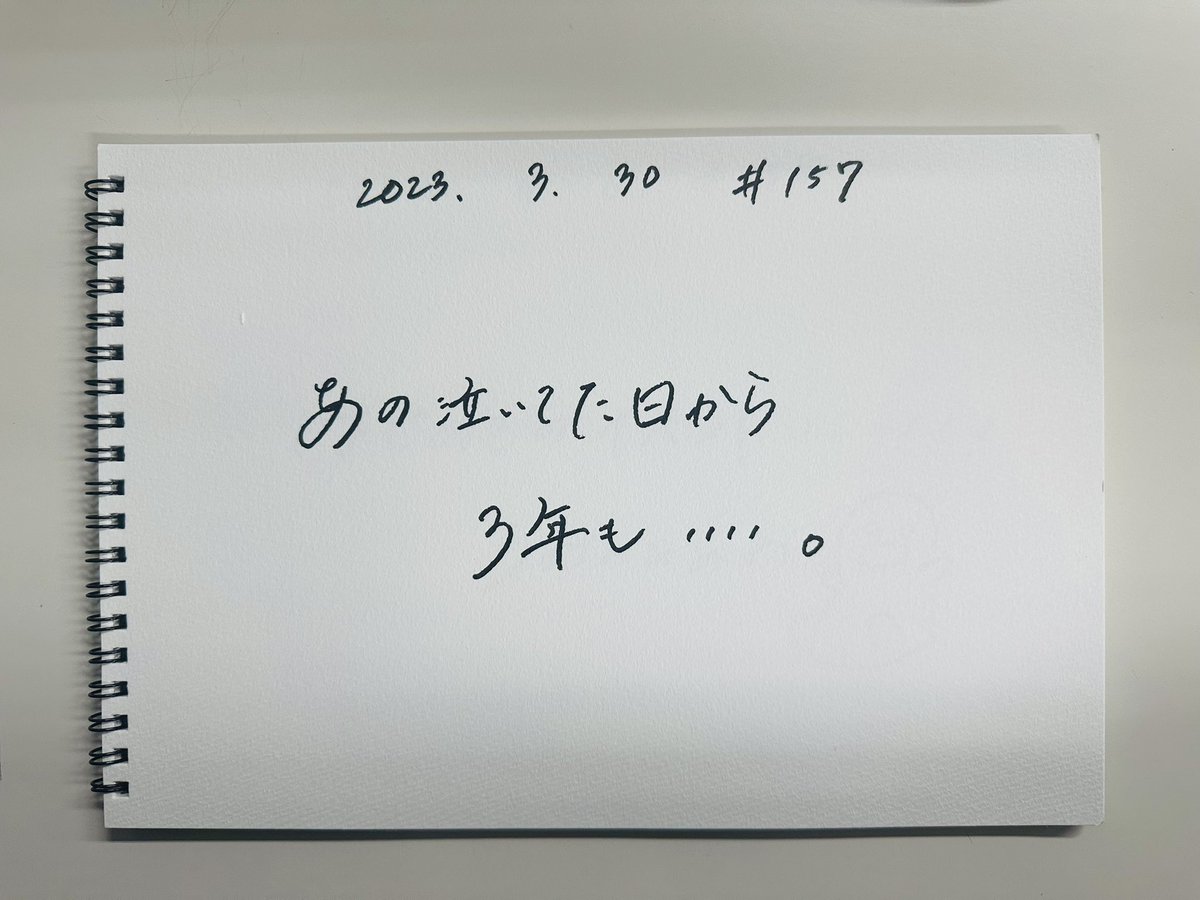 2023. 3. 30 #157
あの泣いてた日から
3年も ‥‥。